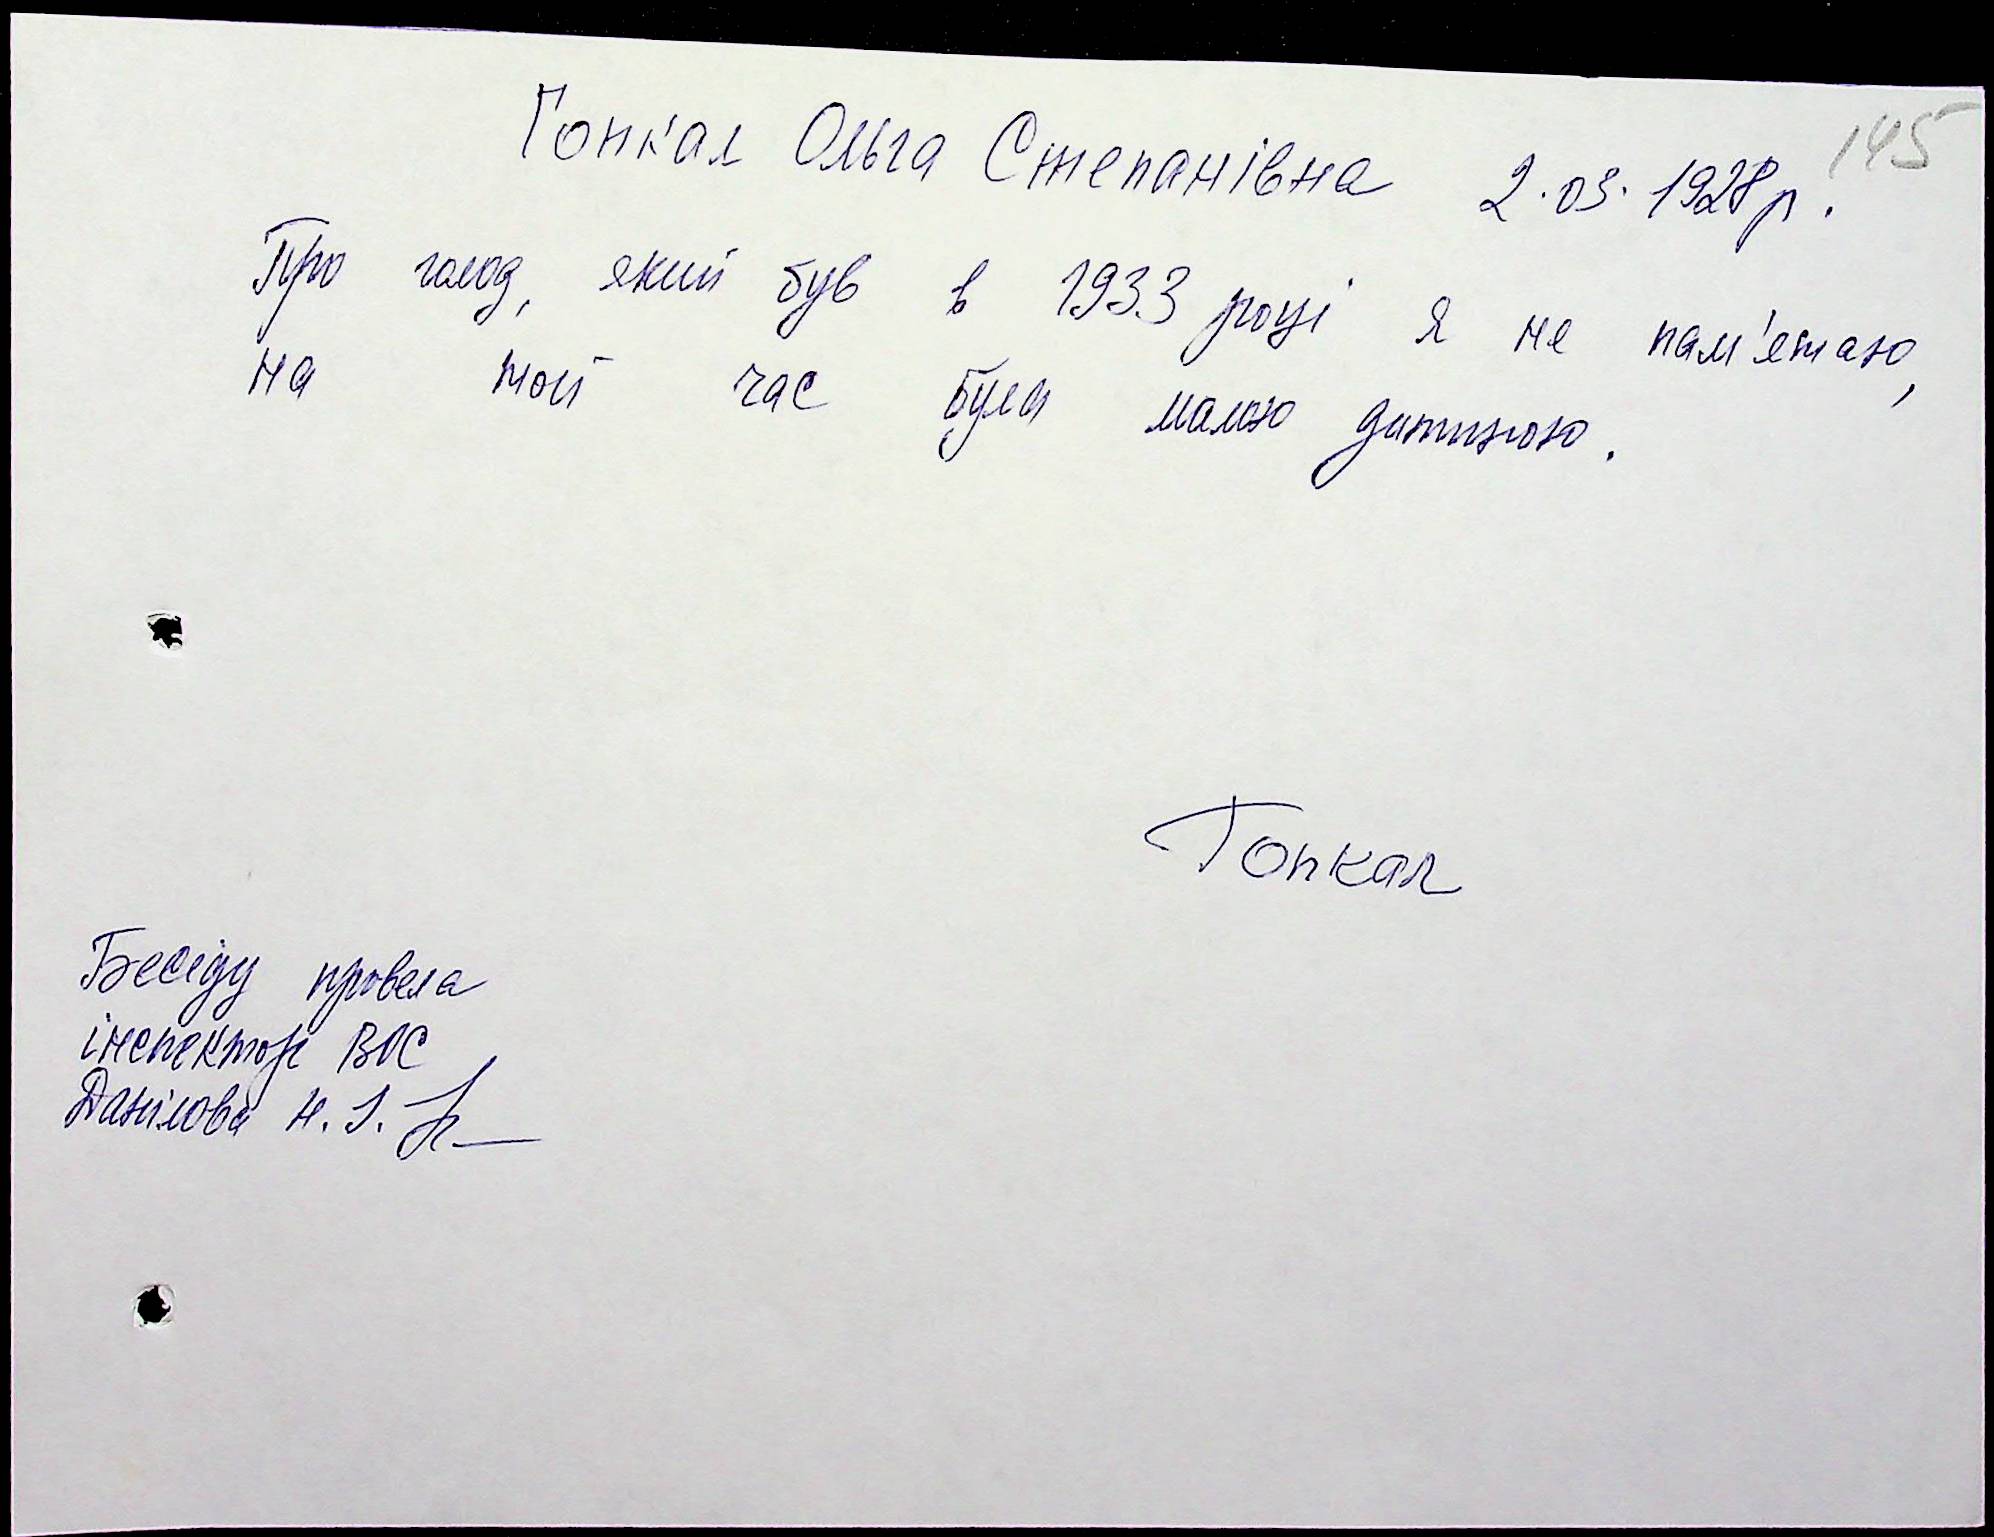 145
Гонкал Ольга Степанівна 2.03.1928р.
Про голод, який був в 1933 році я не пам'ятаю,
на той час була малою дитиною.
Гопкал
Бесіду провела
інспектор ВПС
Данілова Н.І.